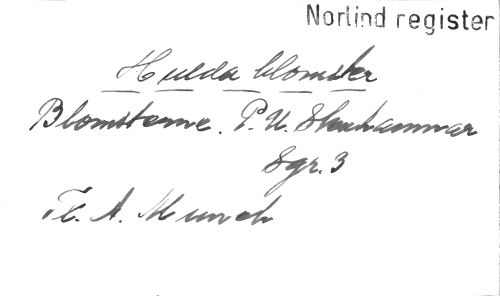 Norlind register
Hulda blomster
Blomsterne. P. U. Stenhammar
Sgr. 3
Tl. A. Munch